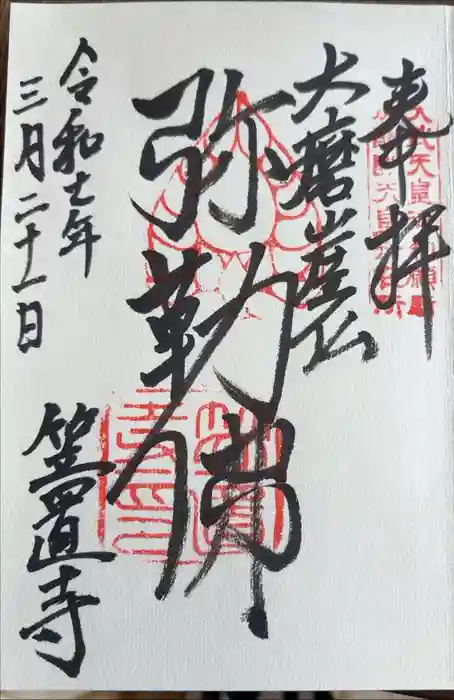 奉拝
大磨崖仏
弥勒佛
令和七年
三月二十一日
笠置寺